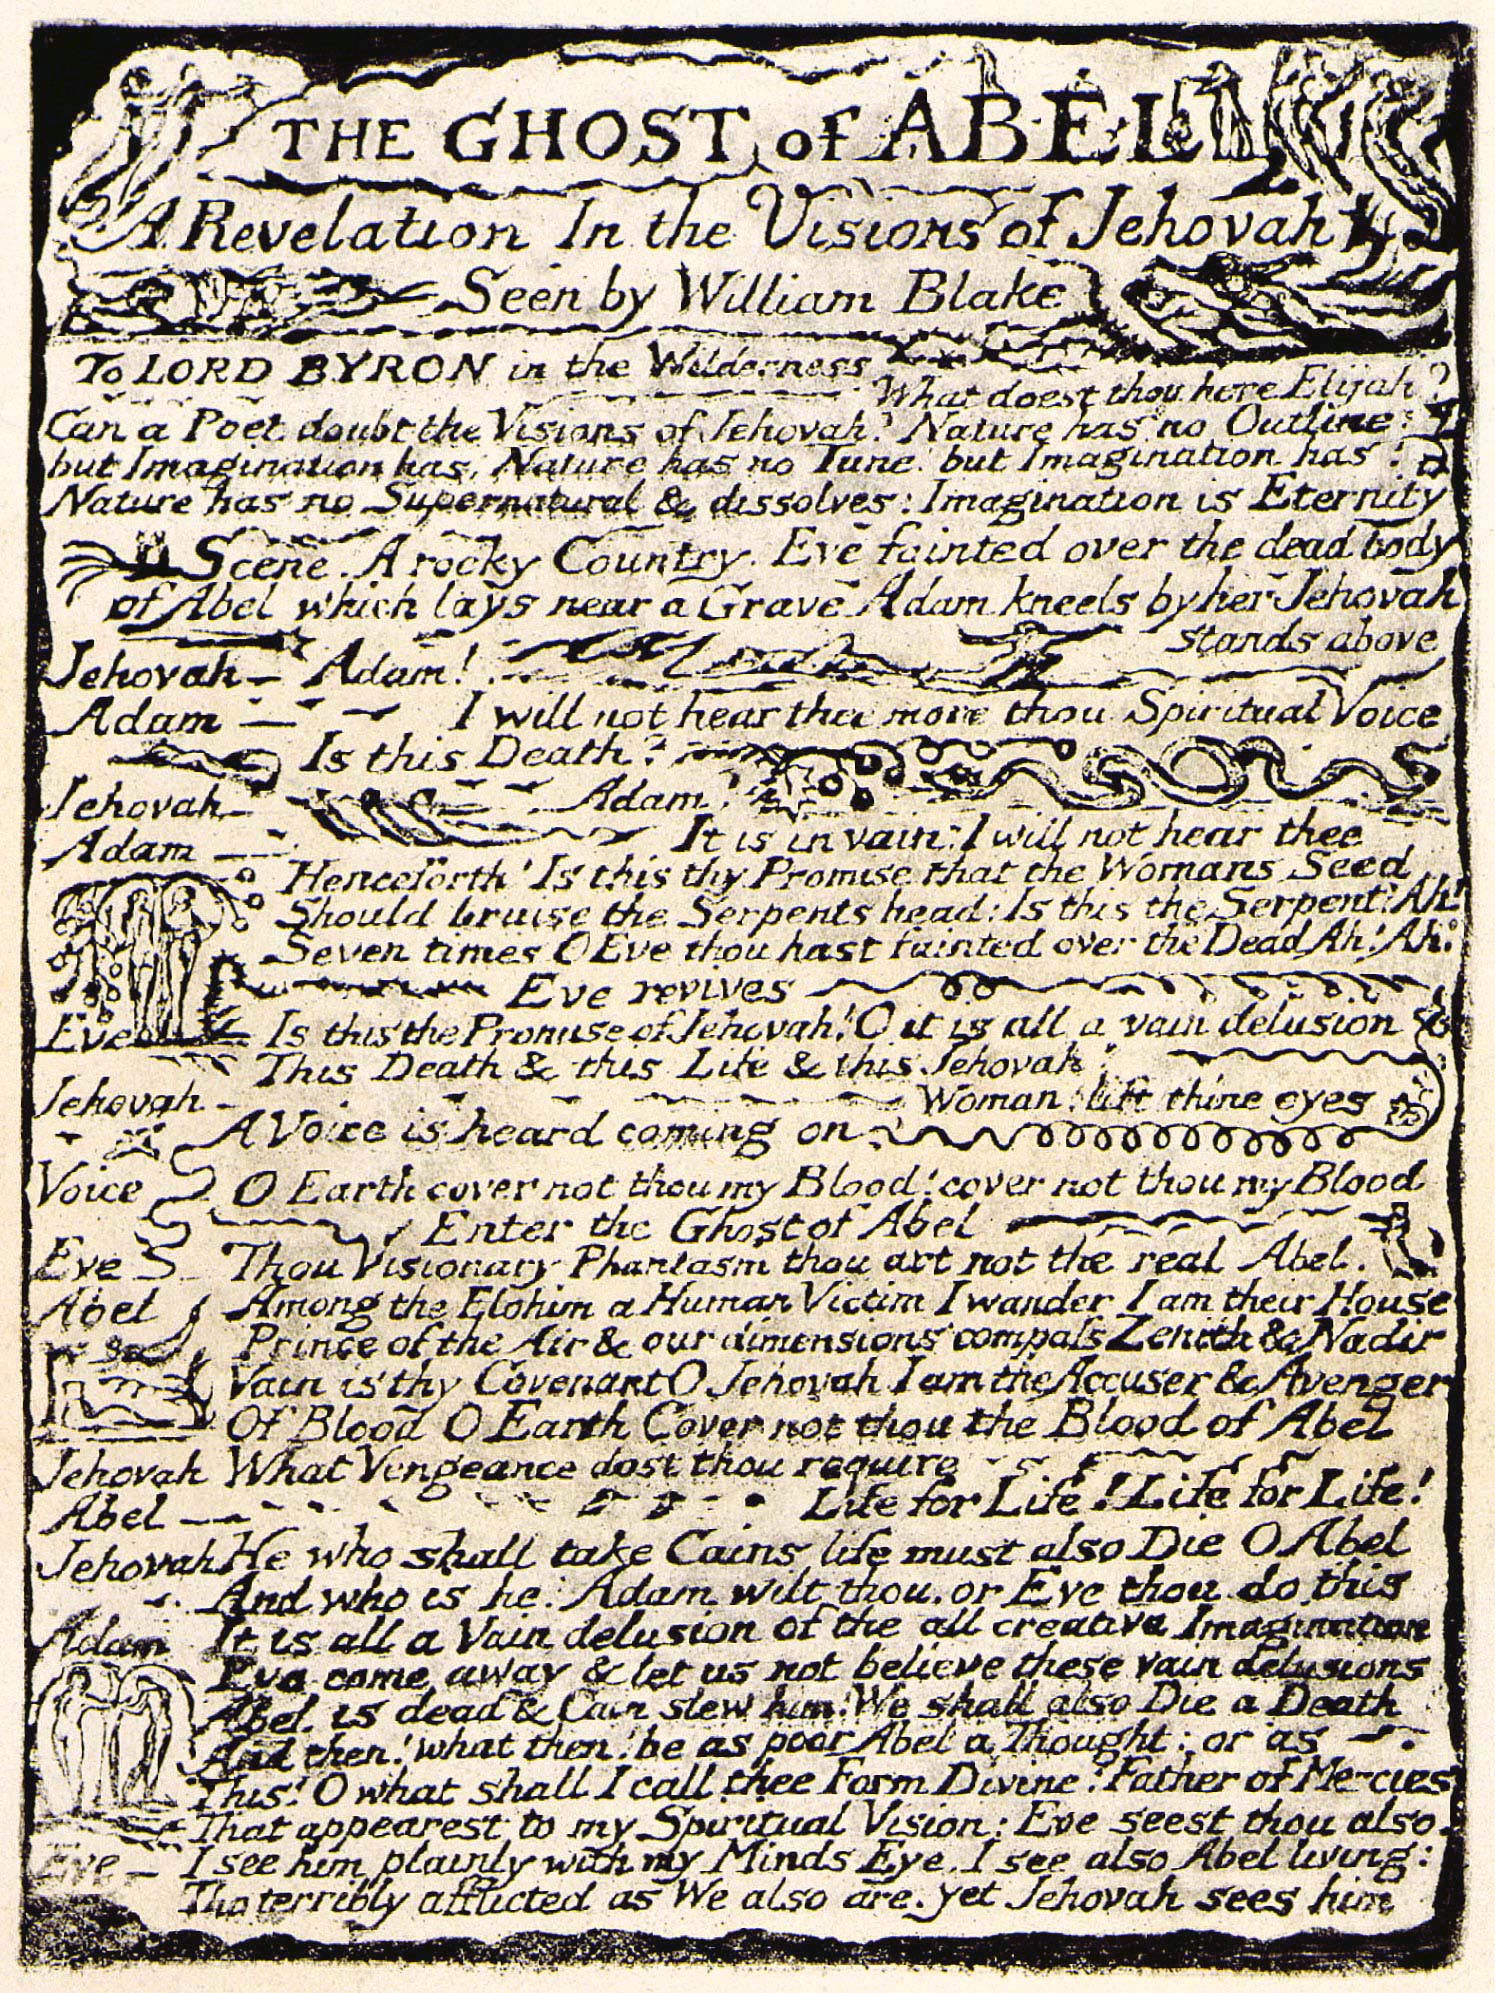 THE GHOST of ABEL
A Revelation In the Visions of Jehovah
Seen by William Blake
To LORD BYRON in the Wilderness
What doest thou here Elijah?
Can a Poet doubt the Visions of Jehovah? Nature has no Outline:
but Imagination has. Nature has no Tune: but Imagination has!
Nature has no Supernatural & dissolves: Imagination is Eternity
Scene. A rocky Country. Eve fainted over the dead body
of Abel which lays near a Grave Adam kneels by her Jehovah
stands above
Jehovah — Adam!
Adam — — — I will not hear thee more thou Spiritual Voice
Is this Death?
Jehovah — Adam!
Adam — It is in vain: I will not hear thee
Henceforth! Is this thy Promise that the Womans Seed
Should bruise the Serpents head: Is this the Serpent? Ah!
Seven times O Eve thou hast fainted over the Dead Ah! Ah!
Eve revives
Eve Is this the Promise of Jehovah! O it is all a vain delusion
This Death & this Life & this Jehovah!
Jehovah — Woman! lift thine eyes
A Voice is heard coming on
Voice O Earth cover not thou my Blood! cover not thou my Blood
Enter the Ghost of Abel
Eve Thou Visionary Phantasm thou art not the real Abel.
Abel Among the Elohim a Human Victim I wander I am their House
Prince of the Air & our dimensions compass Zenith & Nadir
Vain is thy Covenant O Jehovah I am the Accuser & Avenger
Of Blood O Earth Cover not thou the Blood of Abel
Jehovah What Vengeance dost thou require
Abel — — Life for Life! Life for Life!
Jehovah He who shall take Cains life must also Die O Abel
And who is he: Adam wilt thou, or Eve thou do this
Adam It is all a Vain delusion of the all creative Imagination
Eve come away & let us not believe these vain delusions
Abel is dead & Cain slew him! We shall also Die a Death
And then! what then! be as poor Abel a Thought: or as
This! O what shall I call thee Form Divine! Father of Mercies
That appearest to my Spiritual Vision: Eve seest thou also.
Eve — I see him plainly with my Minds Eye. I see also Abel living:
Tho terribly afflicted as We also are. yet Jehovah sees him